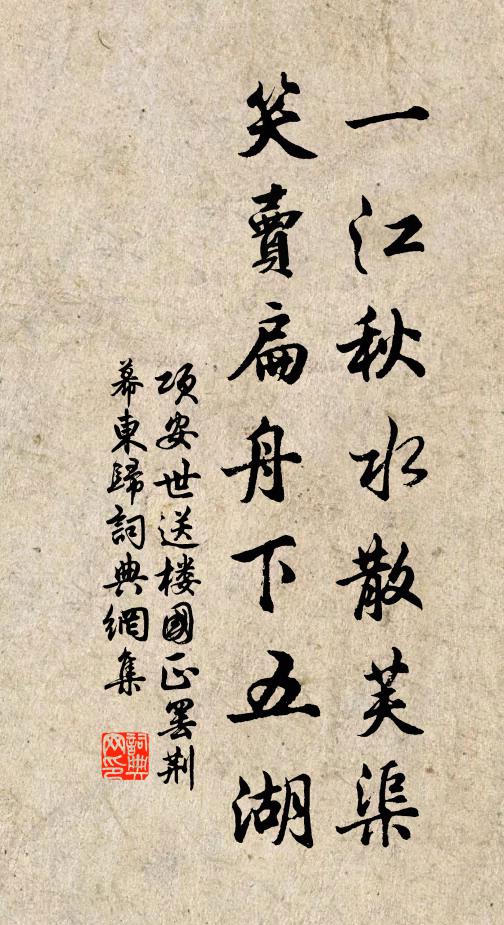 一江秋水散芙渠
笑賣扁舟下五湖
項安世送楼國正罢荆
幕東歸詞典網集
詞典网印